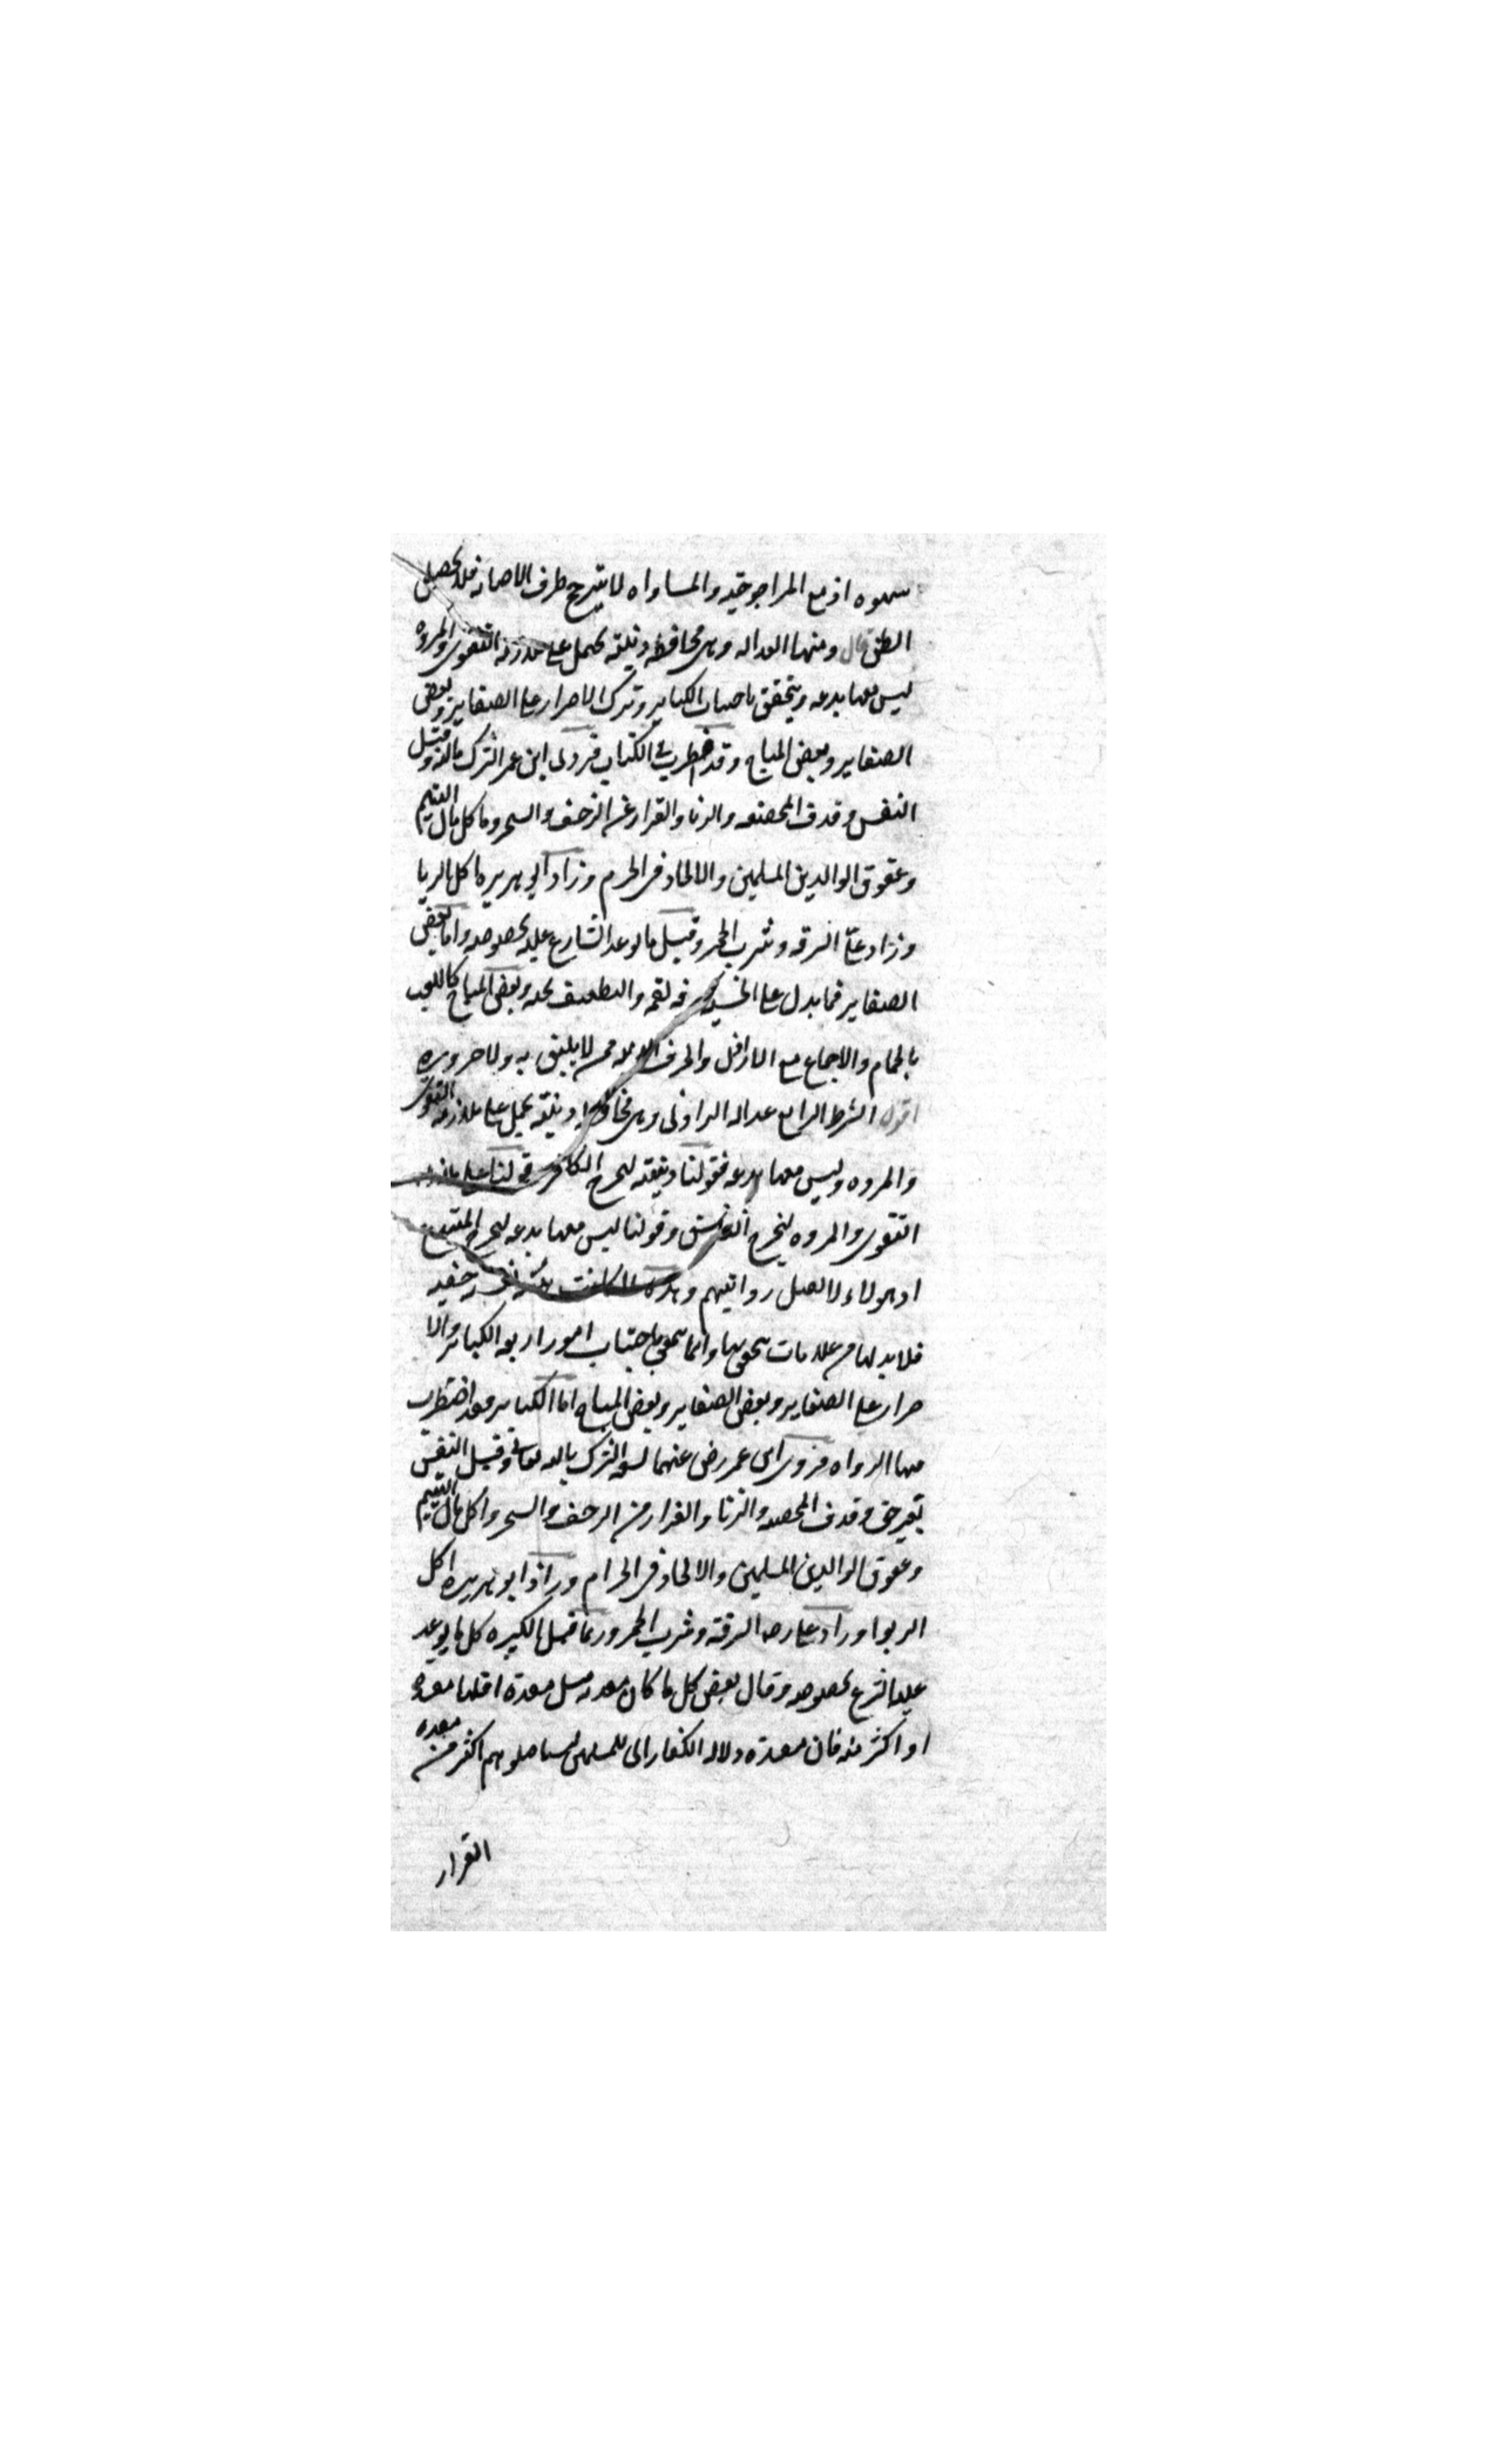 سهوه اذ مع المرجوحيه والمساواه لا يترجح طرف الاصابه فلا يحصل
الظن قال ومنها العداله وهى محافظه دينيه تحمل على ملازمه التقوى والمروه
ليس معها بدعه ويتحقق باجتناب الكباير وترك الاصرار على الصغاير وبعض
الصغاير وبعض المباح وقد اضطرب فى الكباير فروى ابن عمر الشرك بالله وقتل
النفس وقذف المحصنه والزنا والفرار عن الزحف والسحر واكل مال اليتيم
وعقوق الوالدين المسلمين والالحاد فى الحرم وزاد ابو هريره اكل الربا
وزاد على السرقه وشرب الخمر وقيل ما توعد الشارع عليه بخصوصه واما بعض
الصغاير فما يدل على الخسه كسرقه لقمه والتطفيف بحبه وبعض المباح كاللعب
بالحمام والاجتماع مع الاراذل والحرف ممن لا يليق به ولا ضروره
اقول الشرط الرابع عداله الراوى وهى محافظه دينيه تحمل على ملازمه التقوى
والمروه وليس معها بدعه فقولنا دينيه ليخرج الكافر قولنا على ملازمه
التقوى والمروه ليخرج الفاسق وقولنا ليس معها بدعه ليخرج المبتدع
اذ هولاء لا تقبل روايتهم وهذه لما كانت خفيه
فلا بد لها من علامات يتحقق بها وانما يتحقق باجتناب امور اربعه الكباير والا
صرار على الصغاير وبعض الصغاير وبعض المباح اما الكباير فقد اضطرب
فيها الرواه فروى ابن عمر رضى عنهما تسعه الشرك بالله تعالى وقتل النفس
بغير حق وقذف المحصنه والزنا والفرار من الزحف والسحر واكل مال اليتيم
وعقوق الوالدين المسلمين والالحاد فى الحرام وزاد ابو هريره اكل
الربوا وزاد على رضه السرقه وشرب الخمر وربما قيل الكبيره كل ما توعد
عليه الشرع بخصوصه وقال بعض كل ما كان مفسدته مثل مفسدة اقلها مفسده
او اكثر منه فان مفسدة دلاله الكفار الى المسلمين ليستاصلوهم اكثر من مفسده
الفرار